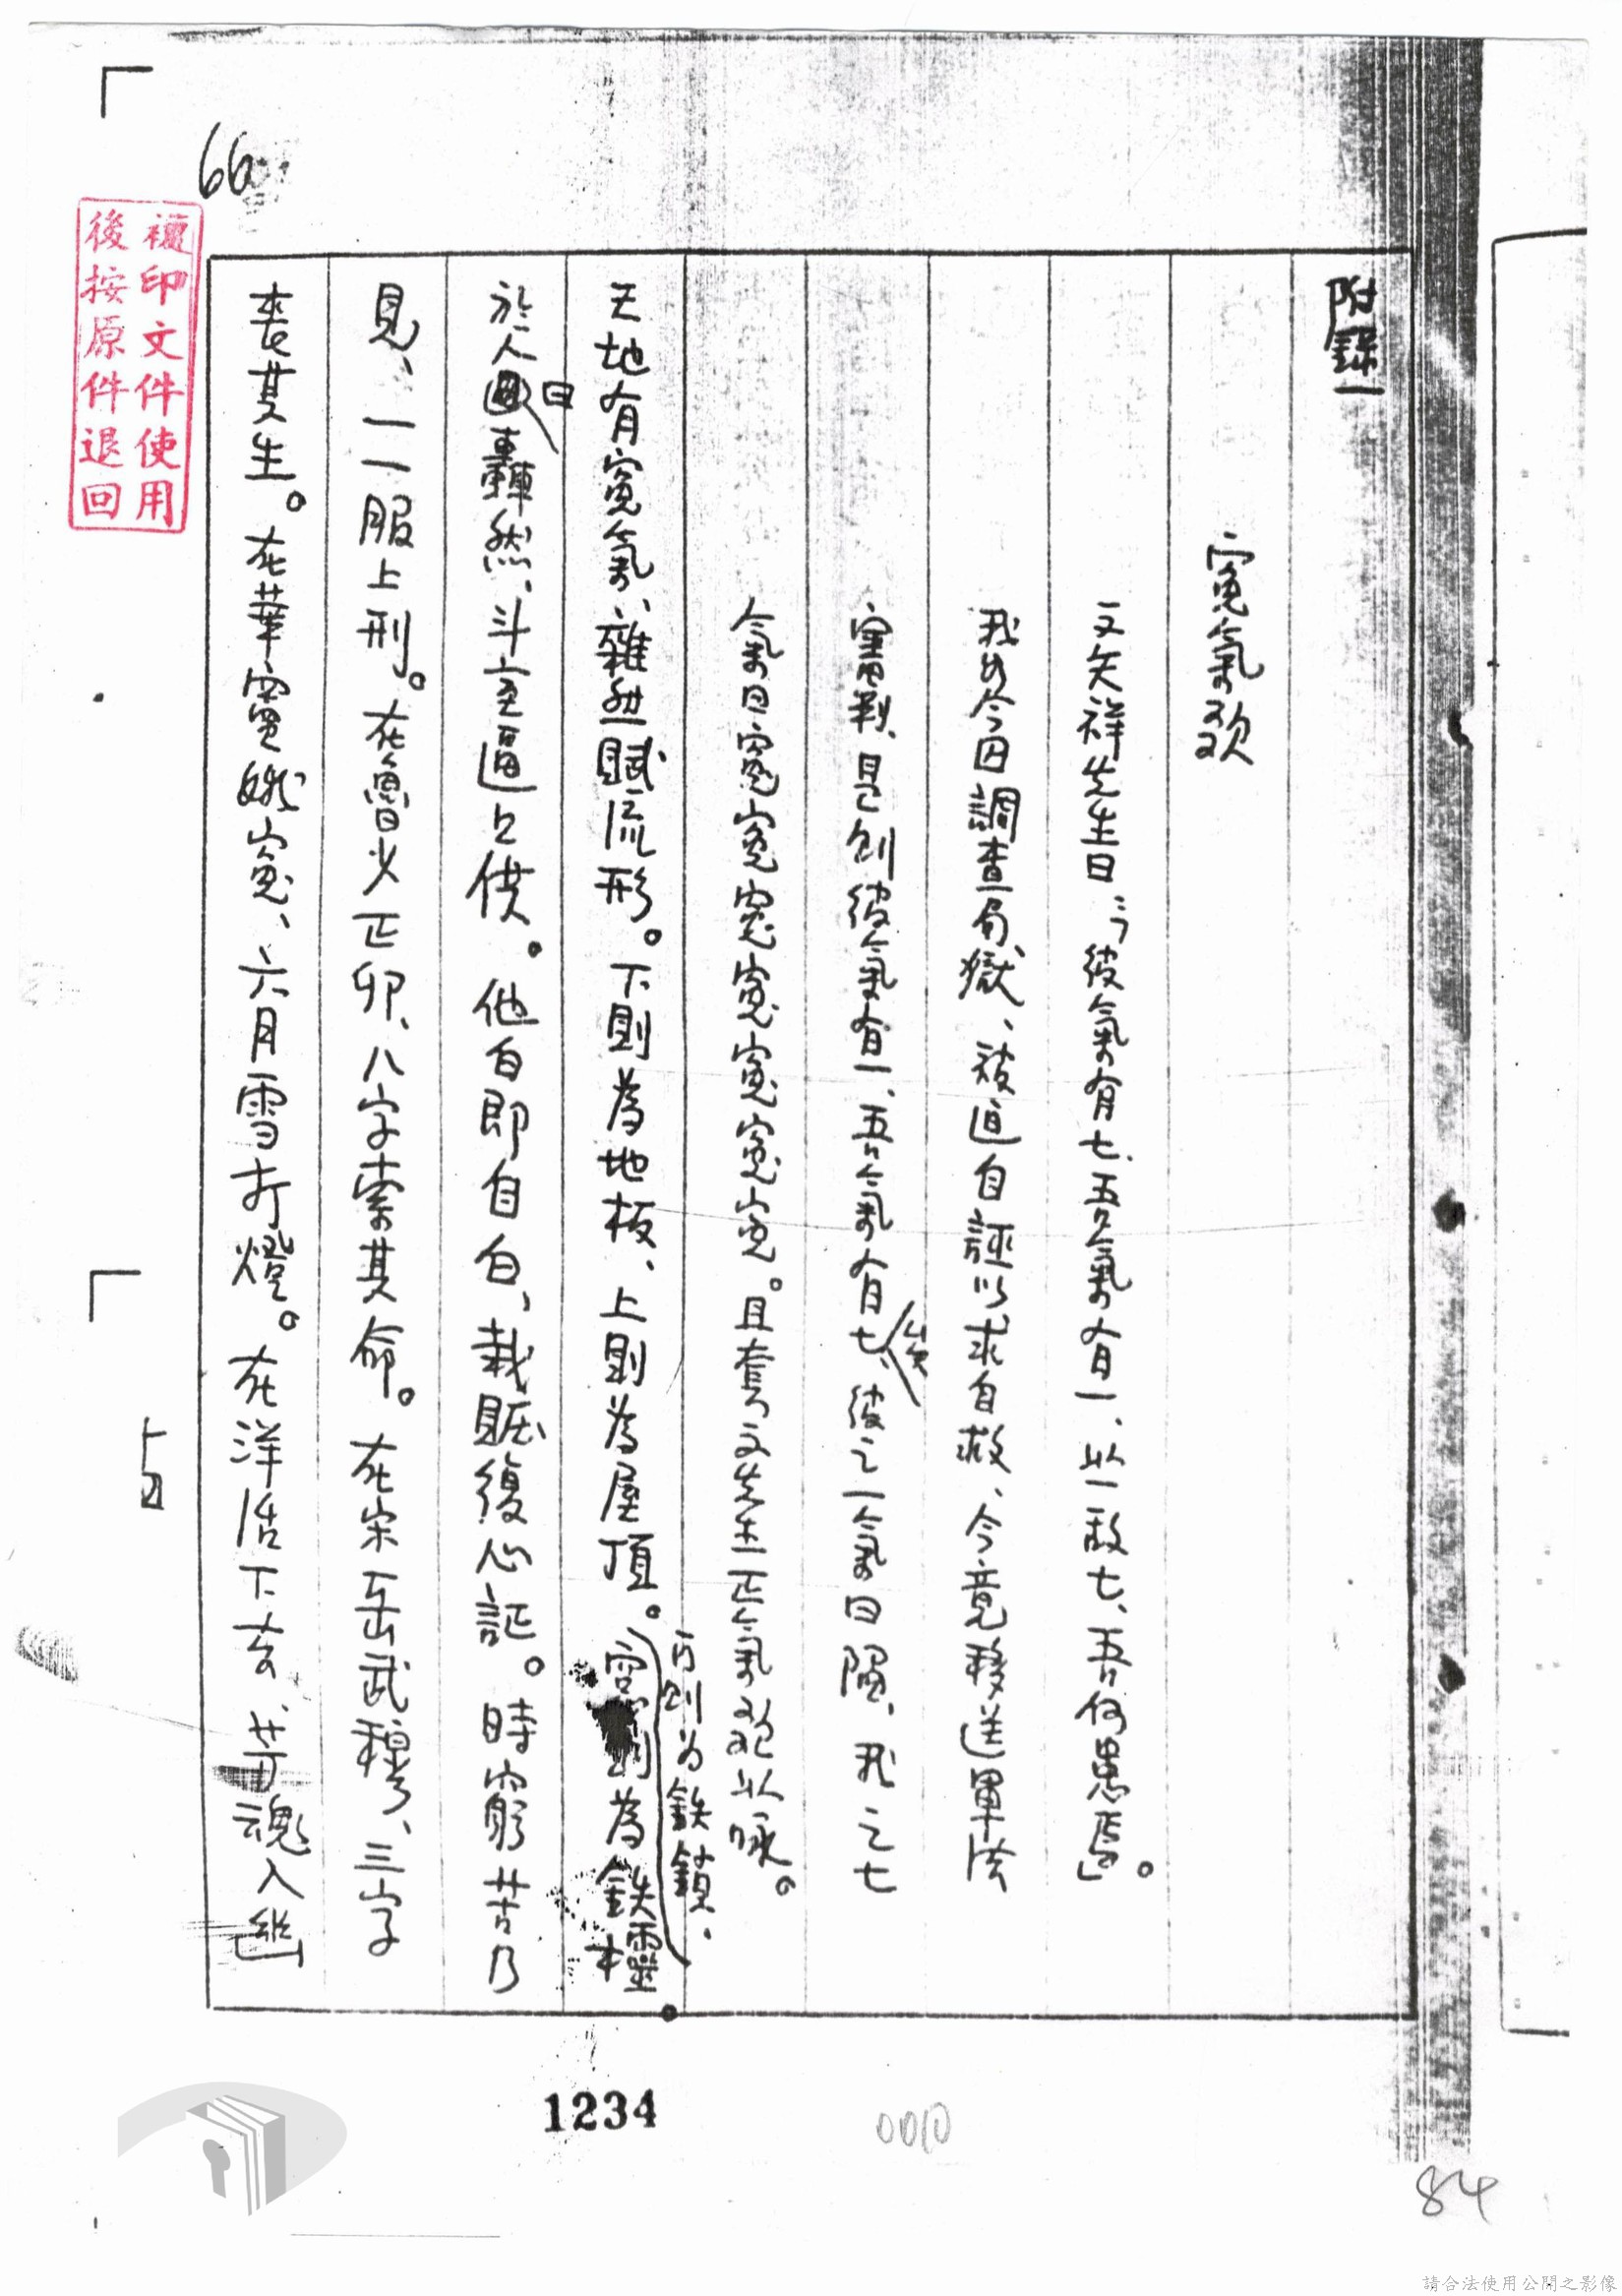 附錄一
冤氣歌
文天祥先生曰:「彼氣有七、吾氣有一、以一敵七、吾何患焉」。
我如今囚調查局獄、被迫自誣以求自救、今竟移送軍法
審判、是則彼氣有一、吾氣有七、彼之一氣曰陰、我之七
矣
氣曰冤冤冤冤冤冤冤。且套文先生正氣歌以咏。
天地有冤氣、雜然賦流形。下則為地板、上則為屋頂。 則為鉄櫺
再則为鉄鎖、
於人曰轟然、斗室逼口供。他白即自白、栽賍復心証。時窮苦乃
見、一一服上刑。在魯少正卯、八字索其命。在宋岳武穆、三字
喪其生。在華竇娥冤、六月雪打燈。在洋浩下玄、黃魂入幽
複印文件使用
後按原件退回
66
1234
0010
84
請合法使用公開之影像